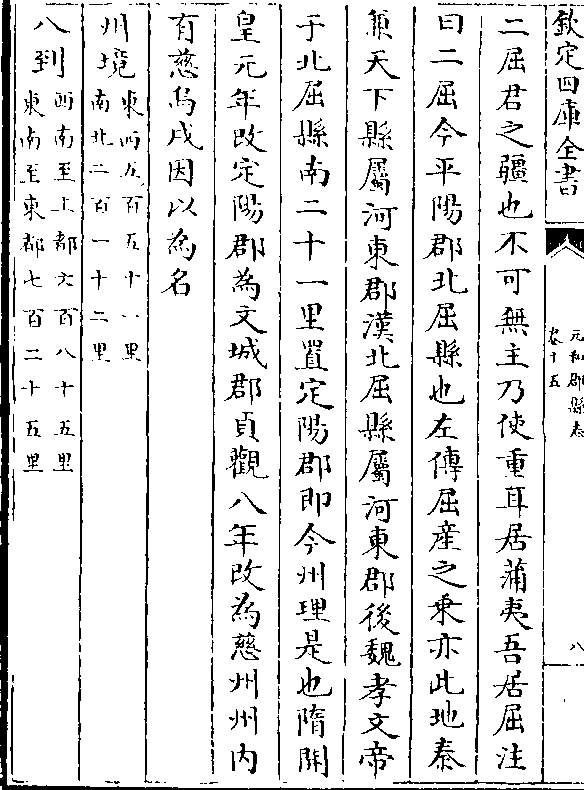 欽定四庫全書
元和郡縣志
卷十五
八
二屈君之疆也不可無主乃使重耳居蒲夷吾居屈注
曰二屈今平陽郡北屈縣也左傳屈産之乘亦此地秦
兼天下縣屬河東郡漢北屈縣屬河東郡後魏孝文帝
于北屈縣南二十一里置定陽郡即今州理是也隋開
皇元年改定陽郡為文城郡貞觀八年改為慈州州内
有慈烏戍因以為名
州境東西五百五十一里
南北二百一十二里
八到西南至上都六百八十五里
東南至東都七百二十五里